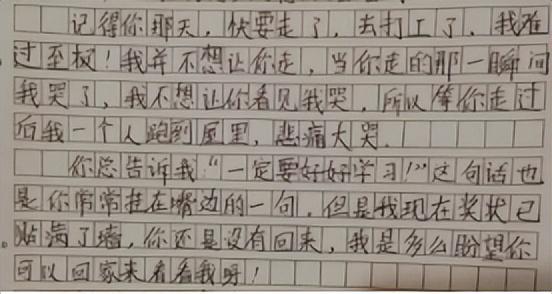 记得你那天，快要走了，去打工了，我难
过至极！我并不想让你走，当你走的那一瞬间
我哭了，我不想让你看见我哭，所以等你走过
后我一个人跑到屋里，悲痛大哭.
你总告诉我“一定要好好学习！”这句话也
是你常常挂在嘴边的一句，但是我现在奖状已
贴满了墙，你还是没有回来，我是多么盼望你
可以回家来看看我呀！